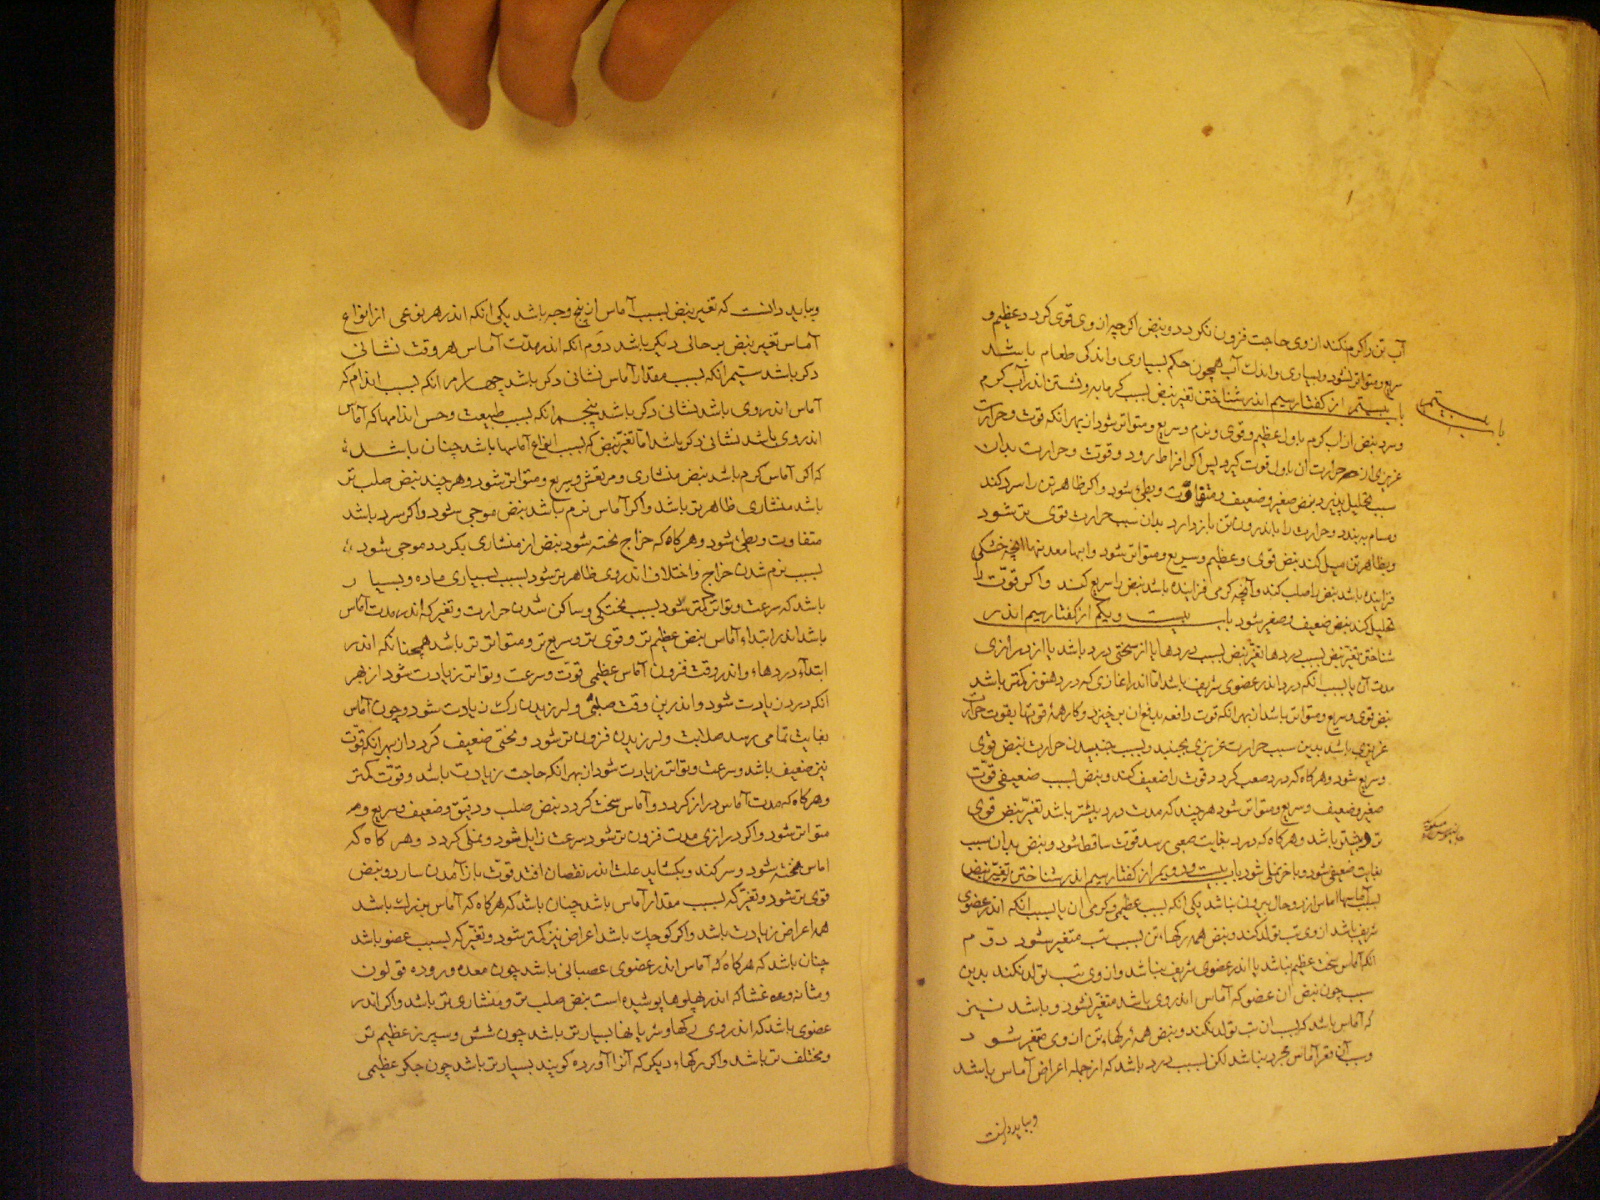 آب تن را کرم نکند ازوی حاجت فزون نکردد و نبض اکرچه ازوی قوی کردد عظیم و
سریع و متواتر نشود و بسیاری و اندک آب همچون حکم بسیاری و اندکی طعام باشد
باب بیستم از کفتار سیم اندر شناختن تغیر نبض بسبب کرمابه و نشستن اندر آب کرم
باب بیستم
و سرد نبض از آب کرم باول عظیم و قوی و نرم و سریع و متواتر شود ازبهر انکه قوت و حرارت
غریزی از حرارت آن باول قوت کیرد پس اکر افراط رود و قوت و حرارت بدان
سبب تحلیل پذیرد نبض صغیر و ضعیف و متفاوت و بطئ شود و اکر ظاهر تن را سرد کند
و مسام ببندد و حرارت را باندرون تن بازدارد بدان سبب حرارت قوی تر شود
و بظاهر تن میل کند نبض قوی و عظیم و سریع و متواتر شود و ابها معدنها انچه خشکی
فزاینده باشد نبض را صلب کند و آنچه کرمی فزاینده باشد نبض را سریع کند و اکر قوت را
تحلیل کند نبض ضعیف و صغیر شود باب بیست و یکم از کفتار سیم اندر
شناختن تغیر نبض بسبب دردها تغیر نبض بسبب دردها یا از سختی درد باشد یا از درازی
مدت آن یا بسبب انکه درد اندر عضوی شریف باشد اما اندر اغازی که درد هنوز کمتر باشد
نبض قوی و سریع و متواتر باشد ازبهر انکه قوت دافعه بدفع ان برخیزد و کار همه قوتها بقوت حرارت
غریزی باشد بدین سبب حرارت غریزی بجنبد و بسبب جنبیدن حرارت نبض قوی
و سریع شود و هرکاه که درد صعب کردد قوت را ضعیف کند و نبض بسبب ضعیفی قوت
صغیر و ضعیف و سریع و متواتر شود هرچند که مدت درد بیشتر باشد تغیر نبض قوی
تر و بیشتر باشد و هرکاه که درد بغایت صعبی رسد قوت ساقط شود و نبض بدان سبب
بغایت ضعیفی شود و باخر نملی شود باب بیست و دویم از کفتار سیم اندر شناختن تغیر نبض
بسبب آماسها اماس از دو حال بیرون نباشد یکی انکه بسبب عظیمی و کرمی ان یا بسبب انکه اندر عضوی
شریف باشد ازوی تب تولد کند و نبض همه رکهای تن بسبب تب متغیر شود دوم
انکه آماس سخت عظیم نباشد یا اندر عضوی شریف نباشد و ازوی تب تولد نکند بدین
سبب چون نبض ان عضو که آماس اندروی باشد متغیر نشود و باشد نیز
که آماس باشد که بسبب ان تب تولد نکند و نبض همه رکهای تن ازوی متغیر شود
و سبب آن تغیر آماس مجرد نباشد لکن بسبب درد باشد که از جمله اعراض آماس باشد
و بباید دانست
و بباید دانست که تغیر نبض بسبب آماس از پنج وجه باشد یکی انکه اندر هر نوعی از انواع
آماس تغیر نبض برحالی دیکر باشد دوم انکه اندر مدت آماس هر وقت نشانی
دکر باشد سیم انکه بسبب مقدار آماس نشانی دکر باشد چهارم انکه بسبب اندام که
آماس اندروی باشد نشانی دکر باشد پنجم انکه بسبب طبیعت و حس اندامها که آماس
اندروی باشد نشانی دکر باشد اما تغیر نبض که بسبب انواع آماسها باشد چنان باشد
که اکر آماس کرم باشد نبض منشاری و مرتعش و سریع و متواتر شود و هرچند نبض صلب تر
باشد منشاری ظاهرتر باشد و اکر آماس نرم باشد نبض موجی شود و اکر سرد باشد
متفاوت و بطئ شود و هرکاه که خراج پخته شود نبض از منشاری بکردد موجی شود
بسبب نرم شدن خراج و اختلاف اندروی ظاهرتر شود بسبب بسیاری ماده و بسیار
باشد که سرعت و تواتر کمتر شود بسبب پختکی و ساکن شدن حرارت و تغیر که اندر مدت آماس
باشد اندر ابتداء آماس نبض عظیم تر و قوی تر و سریع تر و متواتر تر باشد همچنانکه اندر
ابتداء دردهاء و اندر وقت فزون آماس عظیمی قوت و سرعت و تواتر زیادت شود ازبهر
انکه درد زیادت شود و اندرین وقت صلبی و لرزیدن رک زیادت شود و چون آماس
بغایت تمامی رسد صلابت و لرزیدن فزون تر شود و لختی ضعیف کردد ازبهر انکه قوت
نیز ضعیف باشد و سرعت و تواتر زیادت شود ازبهر انکه حاجت زیادت باشد و قوت کمتر
و هرکاه که مدت آماس دراز کردد و آماس سخت کردد نبض صلب و دقیق و ضعیف و سریع و هم
متواتر شود و اکر درازی مدت فزون تر شود سرعت زایل شود و نملی کردد و هرکاه که
اماس پخته شود و سر کند و بکشاید علت اندر نقصان افتد قوت باز آمدن سازد و نبض
قوی تر شود و تغیر که بسبب مقدار آماس باشد چنان باشد که هرکاه که آماس بزرک باشد
همه اعراض زیادت باشد و اکر کوچک باشد اعراض نیز کمتر شود و تغیر که بسبب عضو باشد
چنان باشد که هرکاه که آماس اندر عضوی عصبانی باشد چون معده و روده قولون
و مثانه و غشا که اندر پهلوها پوشیده است نبض صلب تر و منشاری تر باشد و اکر اندر
عضوی باشد که اندروی رکها و شریانها بسیارتر باشد چون شش و سپرز عظیم تر
و مختلف تر باشد و اکر رکهاء دیکر که آنرا آورده کویند بسیارتر باشد چون جکر عظیمی